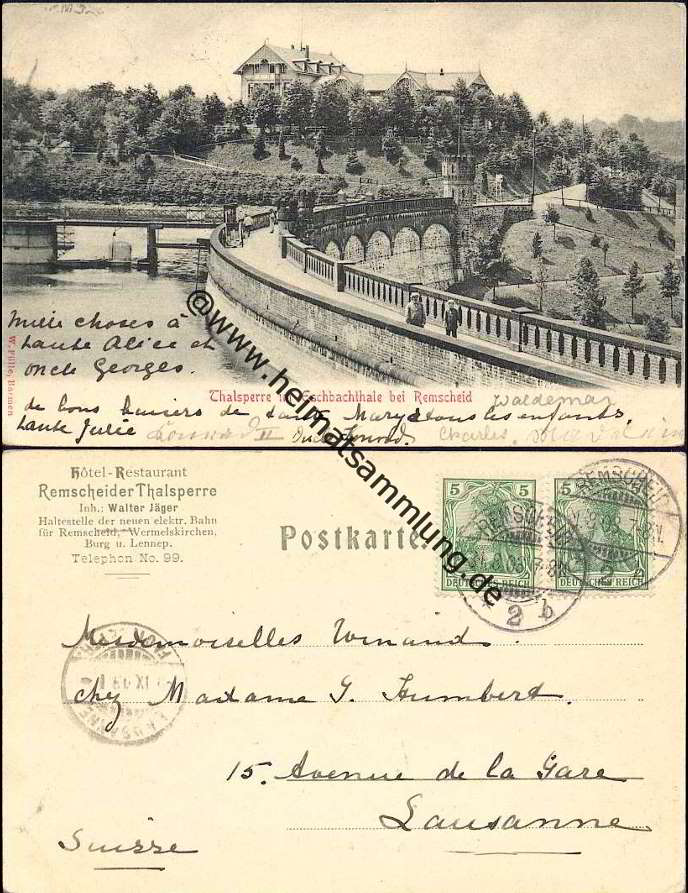 Mille choses à
tante Alice et
oncle Georges.
W. Fülle, Barmen
Thalsperre im Eschbachthale bei Remscheid
Waldemar
de bons baisers de tante Mary & tous les enfants,
tante Julie
Charles,
©www.heimatsammlung.de
Hôtel-Restaurant
Remscheider Thalsperre
Inh.: Walter Jäger
Haltestelle der neuen elektr. Bahn
für Remscheid, Wermelskirchen,
Burg u. Lennep.
Telephon No. 99.
Postkarte
5 5 5
DEUTSCHES REICH DEUTSCHES REICH
REMSCHEID
2 b
REMSCHEID
2 b
LAUSANNE
Mesdemoiselles Winands.
chez Madame G. Humbert.
15. Avenue de la Gare
Lausanne.
Suisse